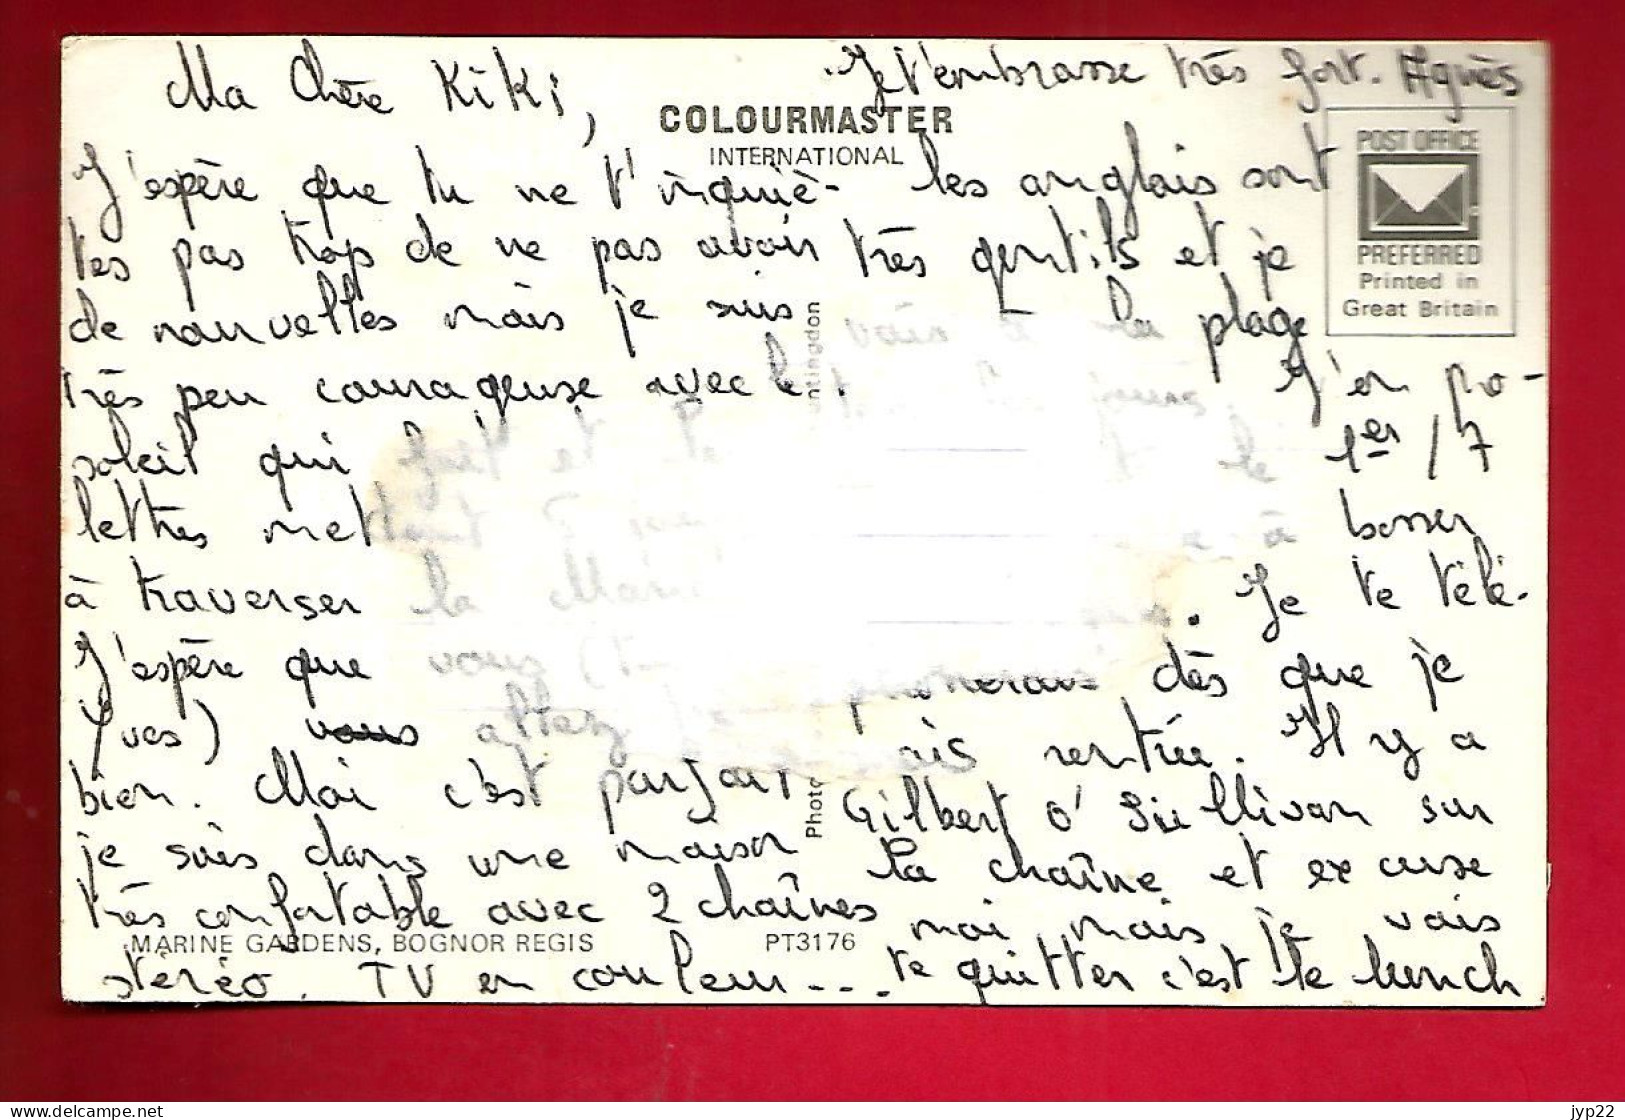 Ma Chère Kiki,
J'espère que tu ne t'inquiè-
tes pas trop de ne pas avoir
de nouvelles mais je suis
très peu courageuse avec le
soleil qui fait et le
lettres mettant 5 jours
à traverser la Manche
J'espère que vous (
Yves) vous allez
bien. Moi c'est parfait
je suis dans une maison
très confortable avec 2 chaînes
stéréo, TV en couleur...
les anglais sont
très gentils et je
vais à la plage
tous les jours. J'en pro-
le 1er/7
à bosser
. Je te télé-
phonerais dès que je
rentrée. Il y a
Gilbert O'Sullivan sur
la chaîne et excuse
moi mais je vais
te quitter c'est le lunch
Je t'embrasse très fort. Agnès
COLOURMASTER
INTERNATIONAL
POST OFFICE
PREFERRED
Printed in
Great Britain
ntingdon
Photo
MARINE GARDENS, BOGNOR REGIS
PT3176
www.delcampe.net
jyp22